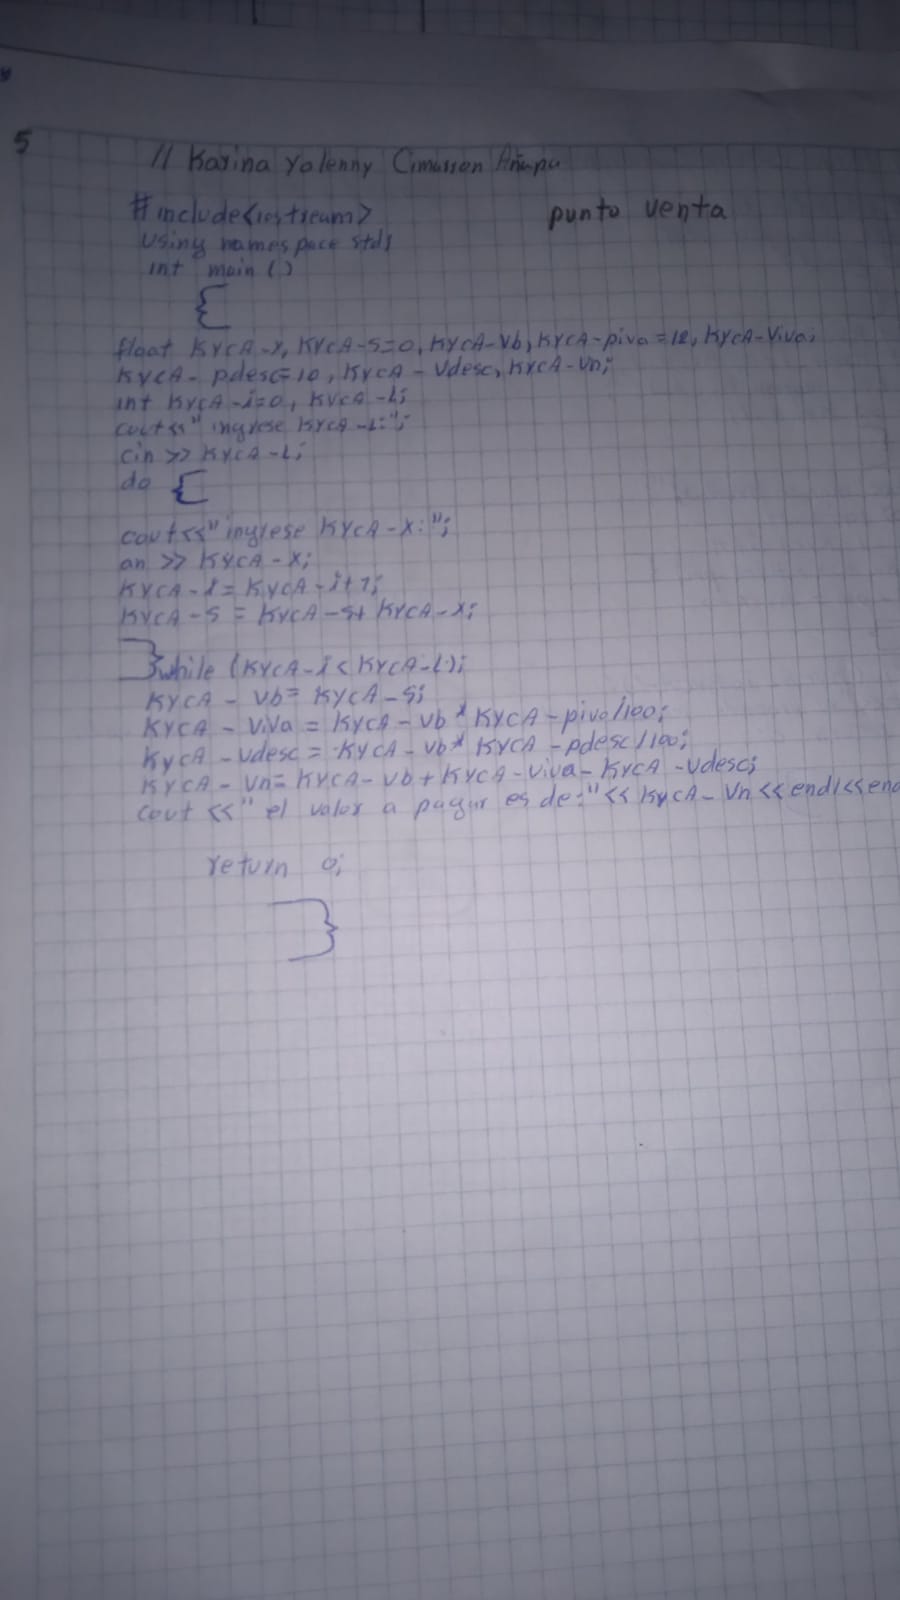 5
// Karina Yolenny Cimarron Añapa
#include<iostream>
punto venta
using namespace std;
int main ()
{
float KYCA-x, KYCA-s=0, KYCA-vb, KYCA-piva=12, KYCA-viva;
KYCA-pdesc=10, KYCA-vdesc, KYCA-vn;
int KYCA-i=0, KYCA-L;
cout<<"ingrese KYCA-L:";
cin >> KYCA-L;
do {
cout<<"ingrese KYCA-x:";
cin >> KYCA-x;
KYCA-i=KYCA-i+1;
KYCA-s = KYCA-s+ KYCA-x;
}while (KYCA-i< KYCA-L);
KYCA-vb= KYCA-s;
KYCA-viva = KYCA-vb* KYCA-piva/100;
KYCA-vdesc = KYCA-vb* KYCA-pdesc/100;
KYCA-vn= KYCA-vb+KYCA-viva-KYCA-vdesc;
cout <<" el valor a pagar es de:"<< KYCA-vn<<endl<<end
return 0;
}